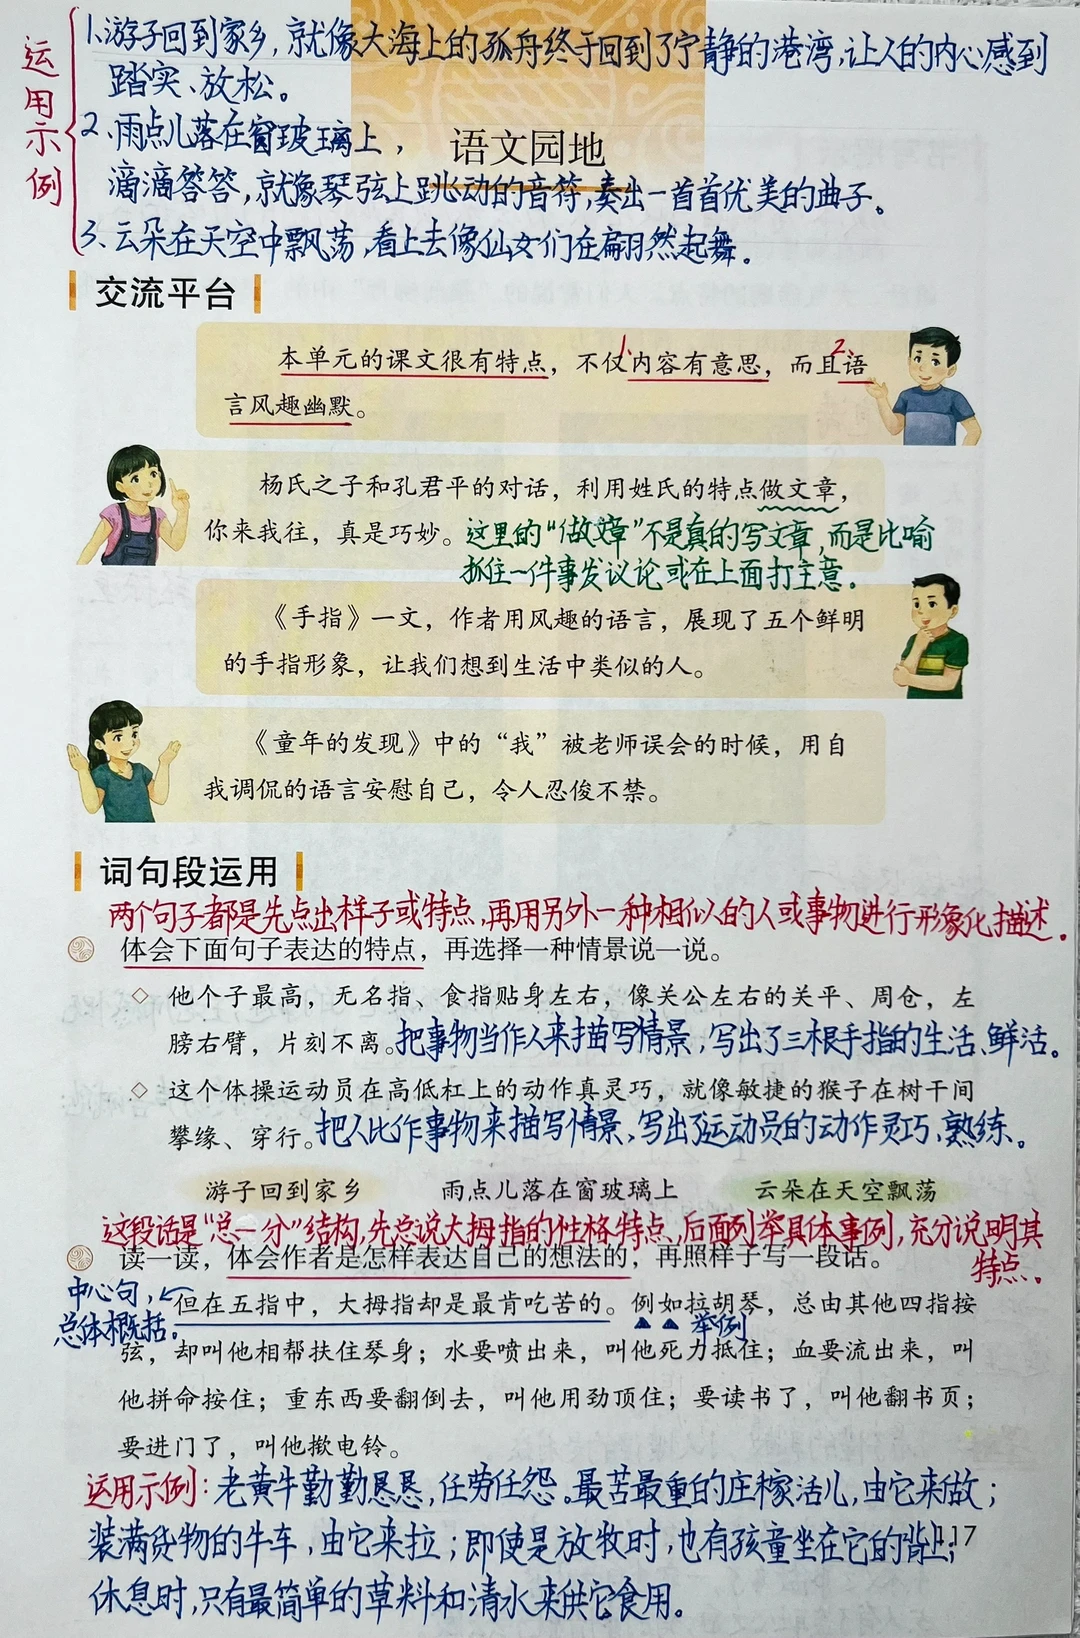 运用示例
1.游子回到家乡,就像大海上的孤舟终于回到了宁静的港湾,让人的内心感到
踏实、放松。
2、雨点儿落在窗玻璃上,
语文园地
滴滴答答,就像琴弦上跳动的音符,奏出一首首优美的曲子。
3、云朵在天空中飘荡,看上去像仙女们在翩翩然起舞。
交流平台
1. 2、
本单元的课文很有特点，不仅内容有意思，而且语
言风趣幽默。
杨氏之子和孔君平的对话，利用姓氏的特点做文章，
你来我往，真是巧妙。这里的“做文章”不是真的写文章,而是比喻
抓住一件事发议论或在上面打主意.
《手指》一文，作者用风趣的语言，展现了五个鲜明
的手指形象，让我们想到生活中类似的人。
《童年的发现》中的“我”被老师误会的时候，用自
我调侃的语言安慰自己，令人忍俊不禁。
词句段运用
两个句子都是先点出样子或特点,再用另外一种相似的人或事物进行形象化描述.
体会下面句子表达的特点，再选择一种情景说一说。
◇ 他个子最高，无名指、食指贴身左右，像关公左右的关平、周仓，左
膀右臂，片刻不离。把事物当作人来描写情景,写出了三根手指的生活、鲜活。
◇ 这个体操运动员在高低杠上的动作真灵巧，就像敏捷的猴子在树干间
攀缘、穿行。把人比作事物来描写情景,写出了运动员的动作灵巧、熟练。
游子回到家乡 雨点儿落在窗玻璃上 云朵在天空飘荡
这段话是“总一分”结构,先总说大拇指的性格特点,后面列举具体事例,充分说明其
特点.
读一读，体会作者是怎样表达自己的想法的，再照样子写一段话。
中心句,
总体概括。
但在五指中，大拇指却是最肯吃苦的。例如拉胡琴，总由其他四指按
举例
弦，却叫他相帮扶住琴身；水要喷出来，叫他死力抵住；血要流出来，叫
他拼命按住；重东西要翻倒去，叫他用劲顶住；要读书了，叫他翻书页；
要进门了，叫他揿电铃。
运用示例:老黄牛勤勤恳恳,任劳任怨。最苦最重的庄稼活儿,由它来做;
装满货物的牛车,由它来拉;即使是放牧时,也有孩童坐在它的背上;
117
休息时,只有最简单的草料和清水来供它食用。